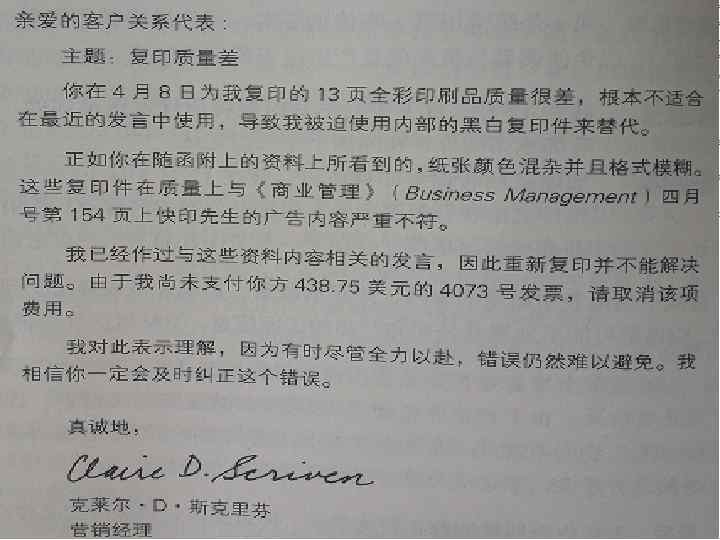 亲爱的客户关系代表：
主题：复印质量差
你在 4 月 8 日为我复印的 13 页全彩印刷品质量很差，根本不适合
在最近的发言中使用，导致我被迫使用内部的黑白复印件来替代。
正如你在随函附上的资料上所看到的，纸张颜色混杂并且格式模糊。
这些复印件在质量上与《商业管理》（Business Management）四月
号第 154 页上快印先生的广告内容严重不符。
我已经作过与这些资料内容相关的发言，因此重新复印并不能解决
问题。由于我尚未支付你方 438.75 美元的 4073 号发票，请取消该项
费用。
我对此表示理解，因为有时尽管全力以赴，错误仍然难以避免。我
相信你一定会及时纠正这个错误。
真诚地，
Claire D. Scriven
克莱尔·D·斯克里芬
营销经理